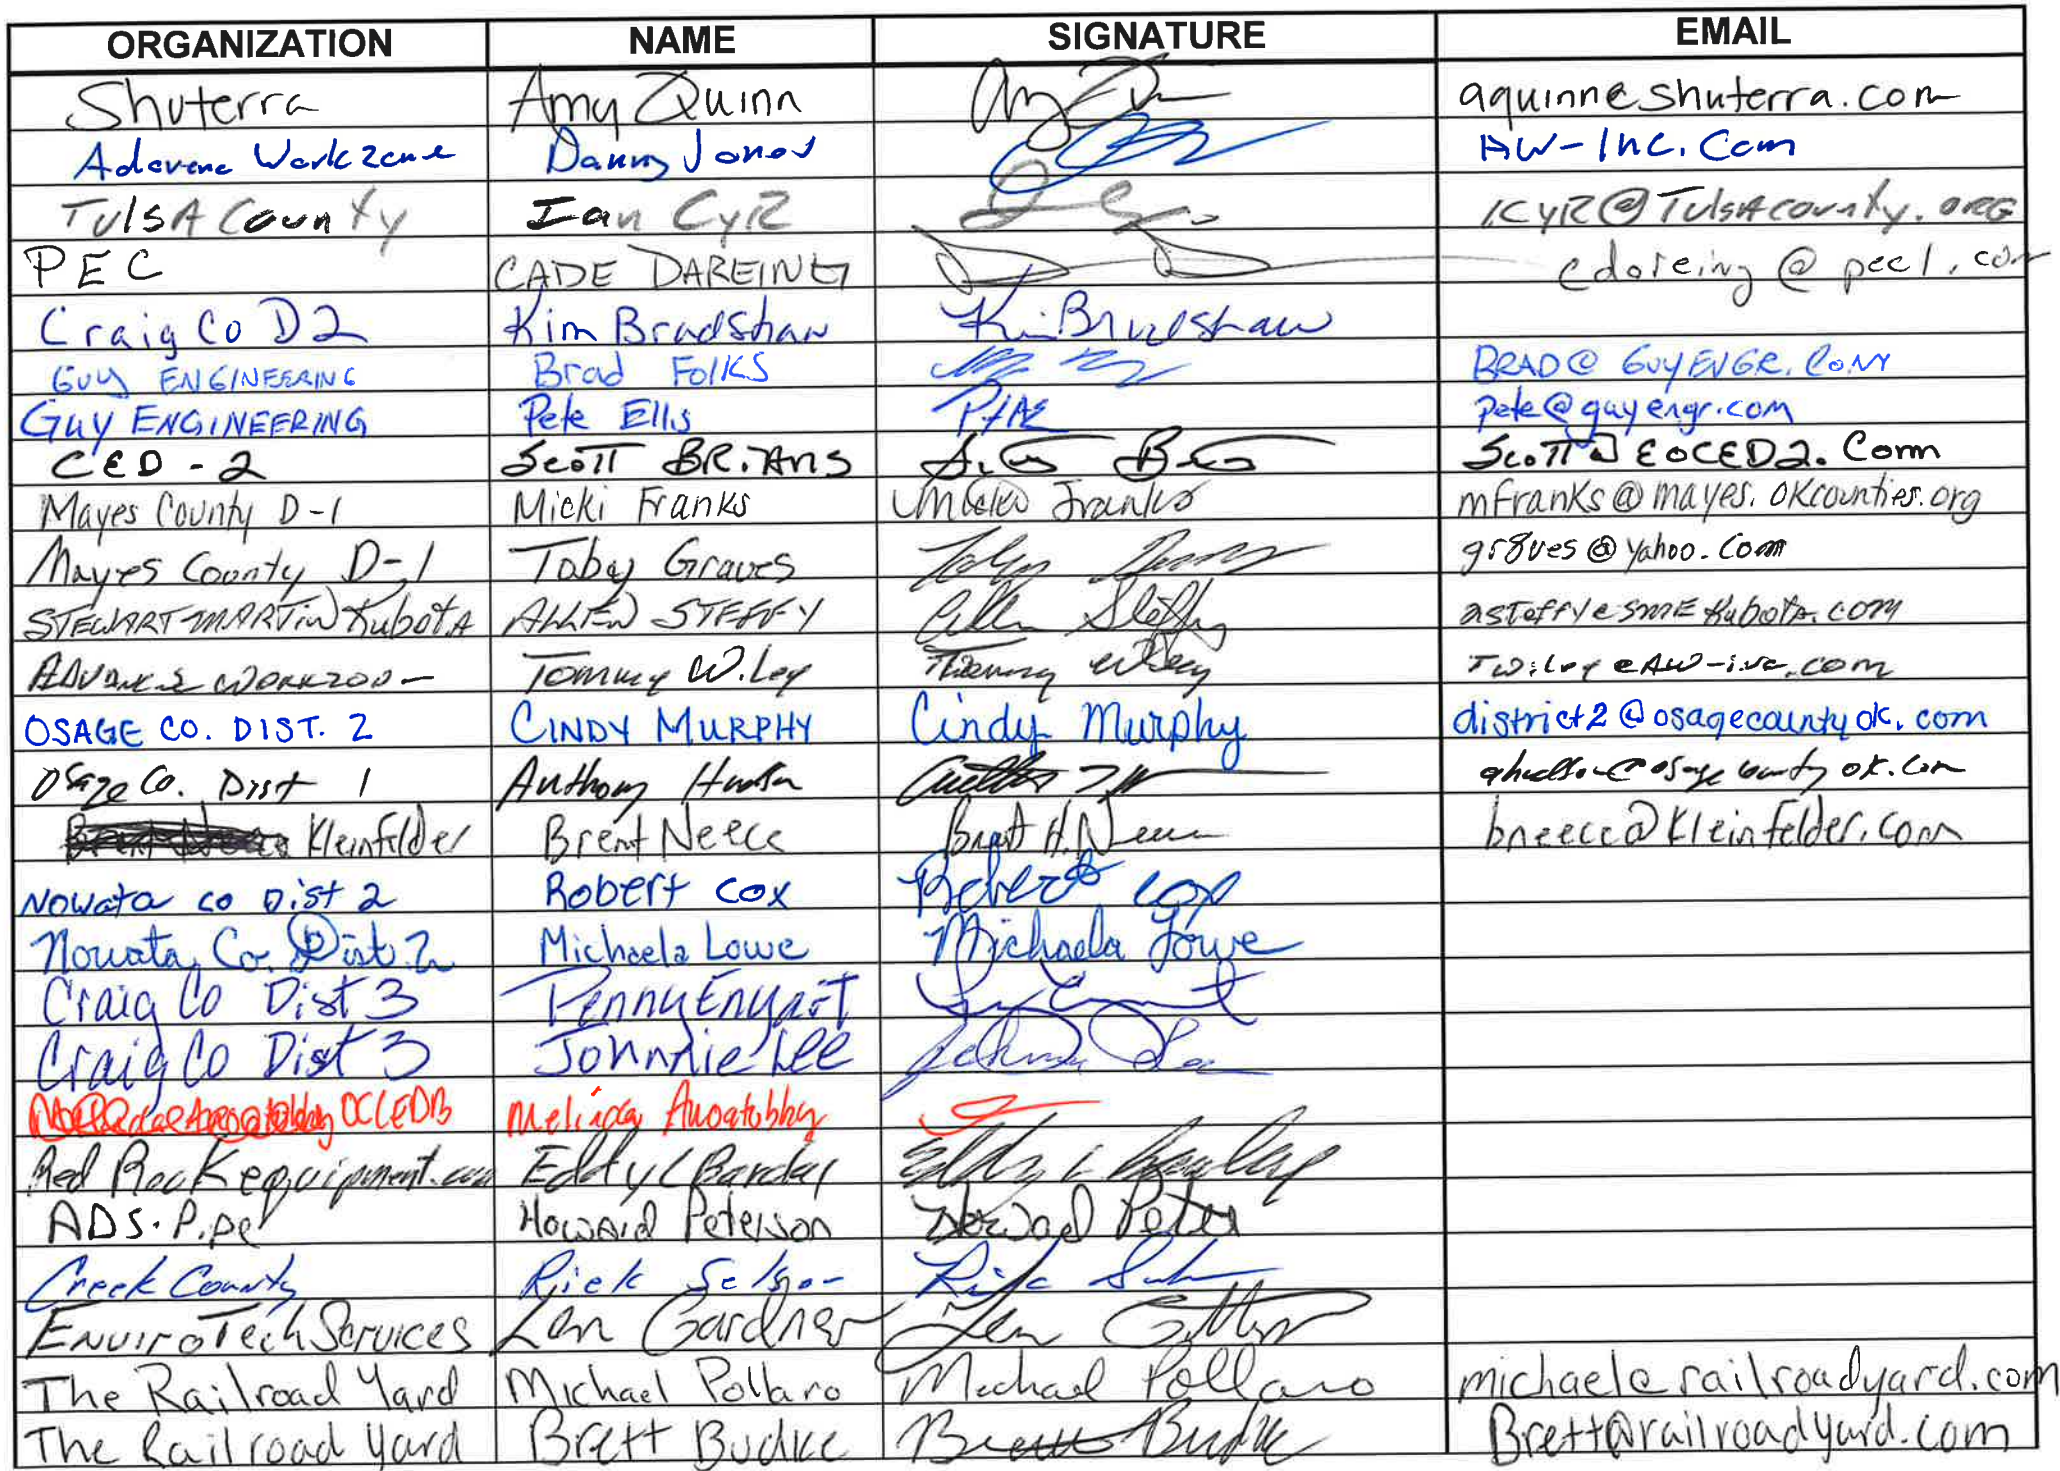 ORGANIZATION NAME SIGNATURE EMAIL
Shuterra Amy Quinn aquinn@shuterra.com
Workzone Danny Jones AW-Inc.Com
TulsA County Ian CyR ICyR@TulsAcounty.ORG
PEC CADE DAREING cdareing@pec1.com
Craig Co D2 Kim Bradshaw Kim Bradshaw
Guy ENGINEERING Brad FolKS BRAD@GUYENGR.COM
GUY ENGINEERING Pete Ellis pete@guyengr.com
CED-2 ScoTT BRiAns ScoTT@EOCED2.Com
Mayes County D-1 Micki Franks Micki Franks mfranks@mayes.okcounties.org
Mayes County D-1 Toby Graves Toby Graves gr8ves@yahoo.com
STEWART MARTiN KubotA ALLEN STEFFY Allen Steffy asteffy@SMEKubota.com
ADVANCE WORKZONE Tommy Wiley Tommy Wiley Twiley@AW-inc.com
OSAGE CO. DIST. 2 CINDY MURPHY Cindy Murphy district2@osagecountyok.com
Osage Co. Dist 1 Anthony Hudson ahudson@osagecountyok.com
Kleinfelder Brent Neece Brent H. Neece bneece@kleinfelder.com
Nowata co Dist 2 Robert Cox Robert Cox
Nowata Co. Dist. 2 Michaela Lowe Michaela Lowe
Craig Co Dist 3 Penny Enyart
Craig Co Dist 3 Johnnie Lee Johnnie Lee
OCCEDB Melinda Anoatubby
Red Rock equipment.com Eddy L
ADS.Pipe Howard Peterson Howard Peter
Creek County Rick
EnviroTech Services Len Gardner Len
The Railroad Yard Michael Pollaro Michael Pollaro michael@railroadyard.com
The Railroad Yard Brett Budke Brett Budke Brett@railroadyard.com